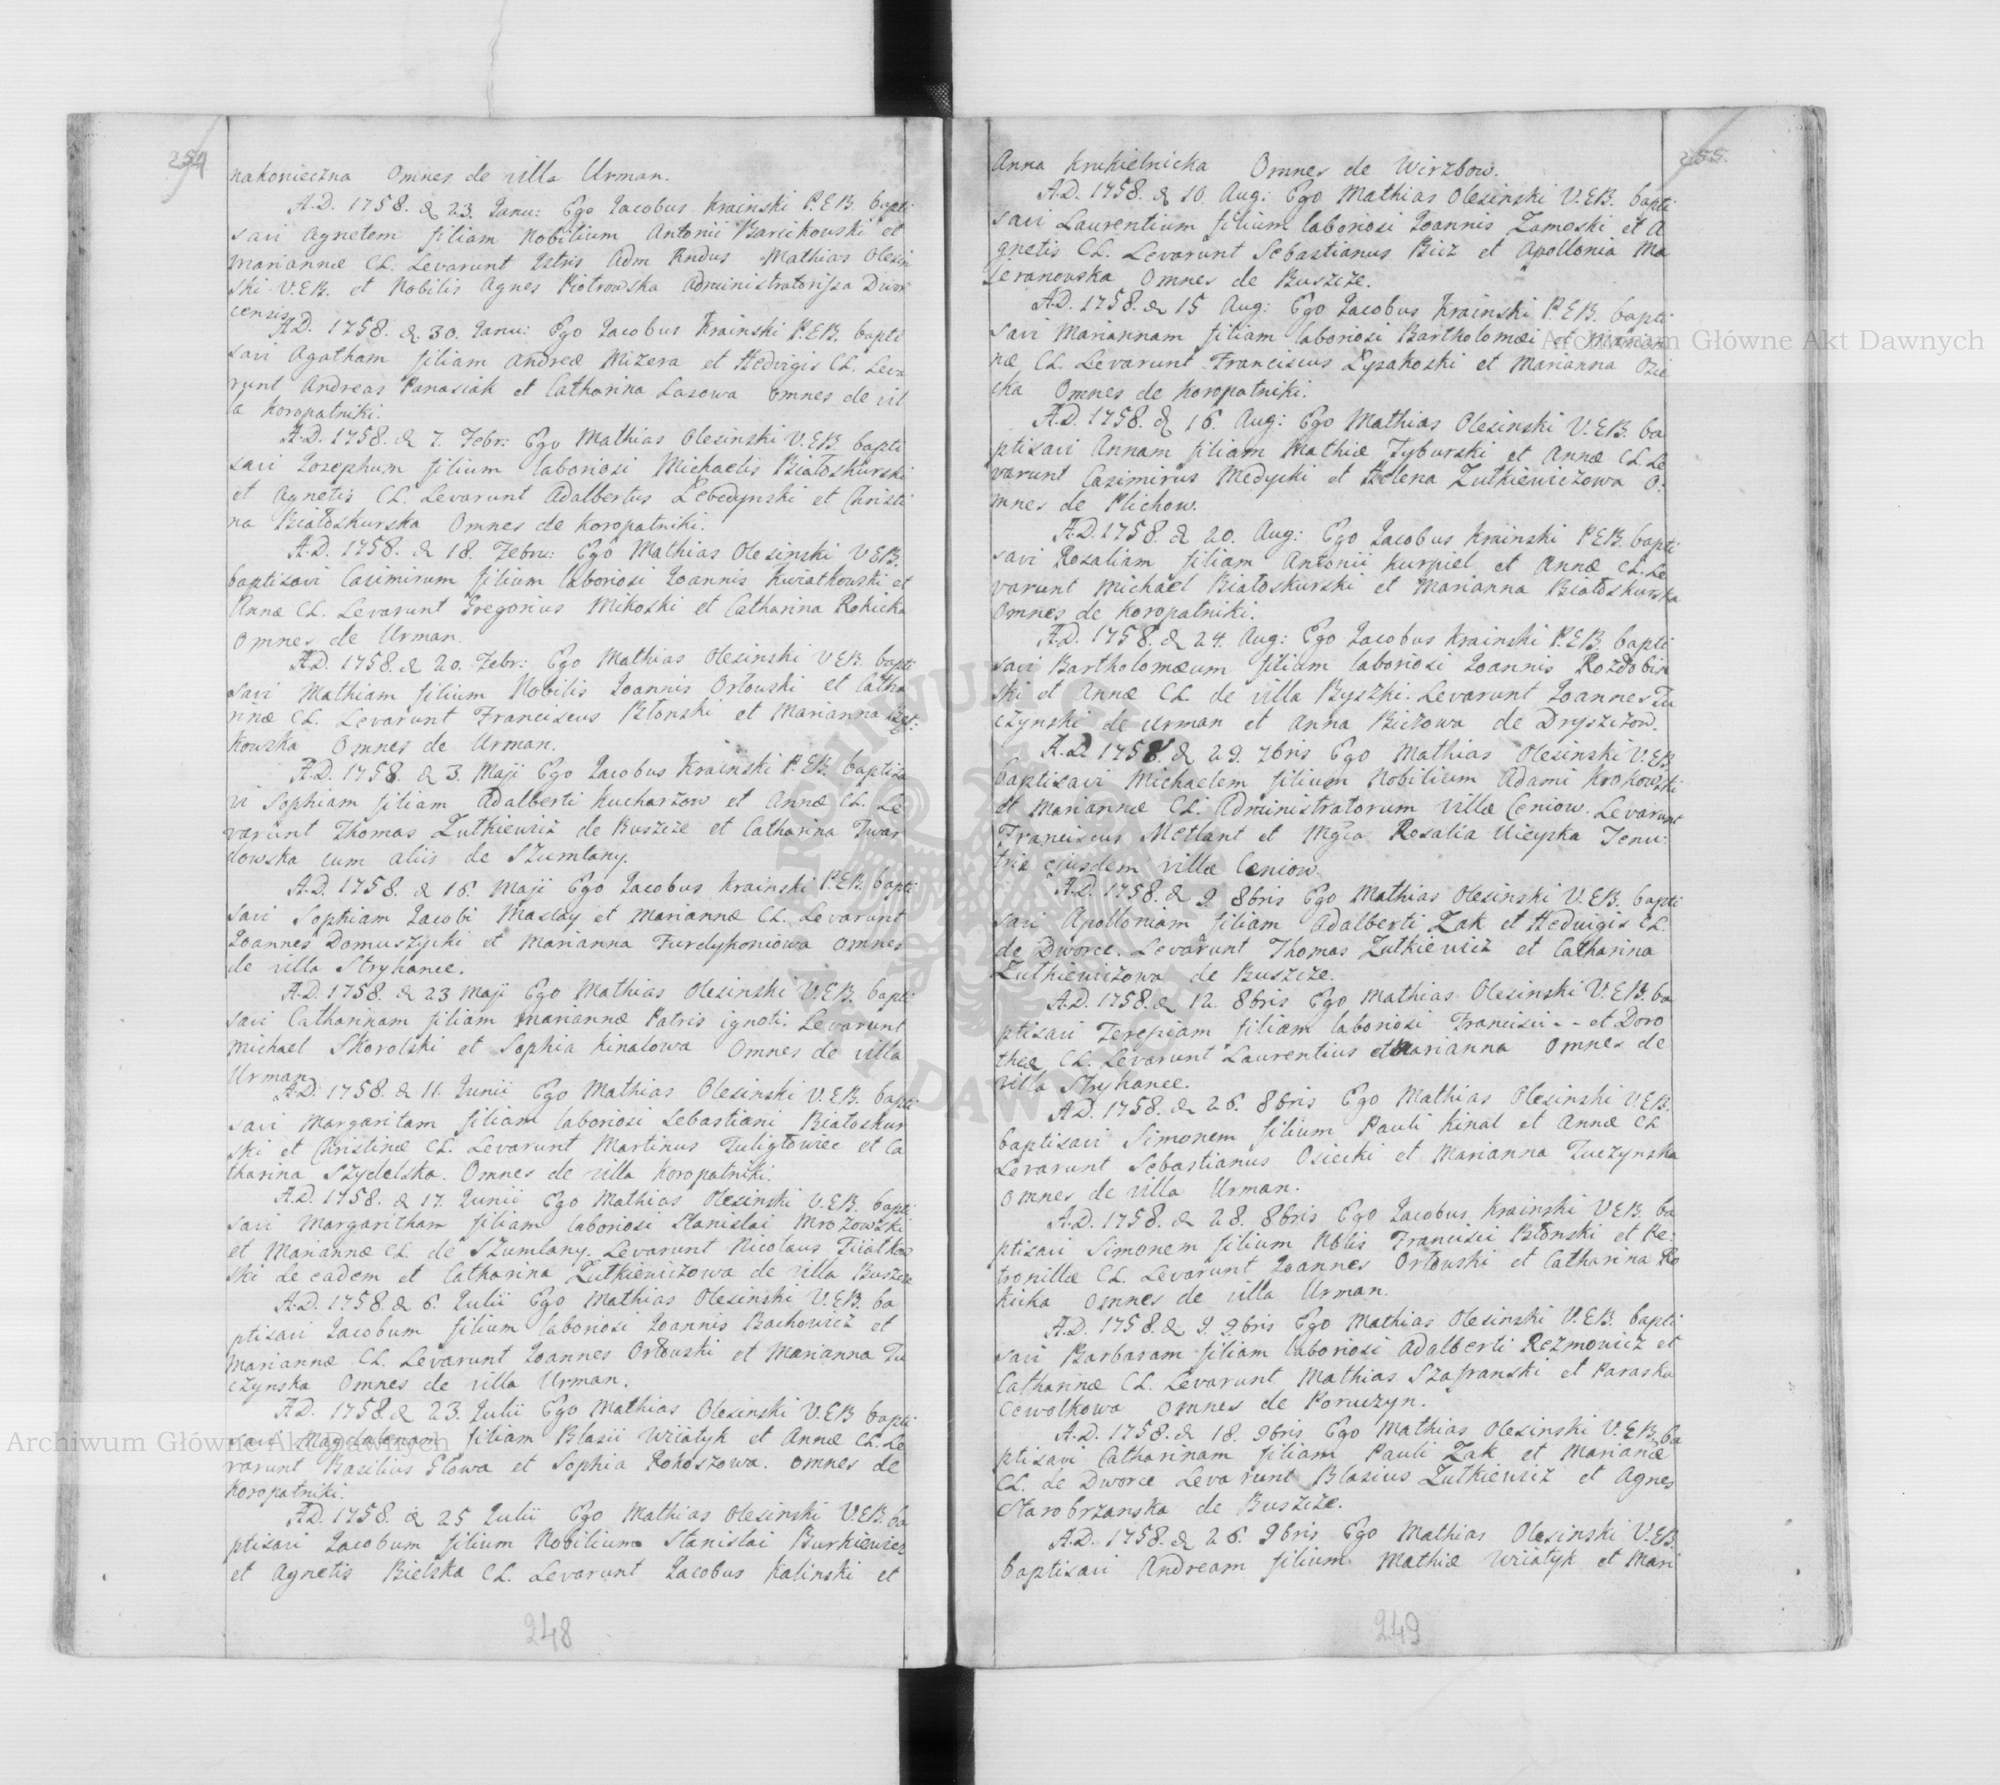 254
nakonieczna Omnes de villa Urman.
A.D. 1758. d. 23. Janu: Ego Jacobus Krainski P.E.B. bapti
savi Agnetem filiam Nobilium Antonii Barcikowski et
Mariannæ CL. Levarunt Adm Rndus Mathias Olesin
ski V.E.B. et Nobilis Agnes Piotrowska Administratorissa Dwor
censis
A.D. 1758. d. 30. Janu: Ego Jacobus Krainski P.E.B. bapti
savi Agatham filiam Andreæ Mizera et Hedvigis CL. Leva
runt Andreas Panasiak et Catharina Lasowa omnes de vil
la Koropatniki.
A.D. 1758. d. 7. Febr: Ego Mathias Olesinski V.E.B. bapti
savi Josephum filium laboriosi Michaelis Białoskurski
et Agnetis CL. Levarunt Adalbertus Lebedynski et Christi
na Białoskurska Omnes de Koropatniki.
A.D. 1758. d. 18. Febru: Ego Mathias Olesinski V.E.B.
baptisavi Casimirum filium laboriosi Joannis Kwiatkowski et
Annæ CL. Levarunt Gregorius Mikoski et Catharina Rokicka
Omnes de Urman.
A.D. 1758. d. 20. Febr: Ego Mathias Olesinski V.E.B. bapti
savi Mathiam filium Nobilis Joannis Orłowski et Catha
rinæ CL. Levarunt Franciscus Błonski et Marianna
kowska Omnes de Urman.
A.D. 1758. d. 3. Maji Ego Jacobus Krainski P.E.B. baptisa
vi Sophiam filiam Adalberti Kucharzow et Annæ CL. Le
varunt Thomas Zutkiewicz de Buszcze et Catharina Twar
dowska cum aliis de Szumlany.
A.D. 1758. d. 16. Maji Ego Jacobus Krainski P.E.B. bapti
savi Sophiam Jacobi Maslay et Mariannæ CL. Levarunt
Joannes Domuszycki et Marianna Furdykoniowa omnes
de villa Stryhance.
A.D. 1758. d. 23 Maji Ego Mathias Olesinski V.E.B. bapti
savi Catharinam filiam Mariannæ Patris ignoti. Levarunt
Michael Skorolski et Sophia Kinalowa Omnes de villa
Urman.
A.D. 1758. d. 11. Junii Ego Mathias Olesinski V.E.B. bapti
savi Margaritam filiam laboriosi Sebastiani Białoskur
ski et Christinæ CL. Levarunt Martinus Tuligłowiec et Ca
tharina Szydelska. Omnes de villa Koropatniki.
A.D. 1758. d. 17. Junii Ego Mathias Olesinski V.E.B. bapti
savi Margaritham filiam laboriosi Stanislai Mrozowski
et Mariannæ CL. de Szumlany. Levarunt Nicolaus Fiiałkow
ski de eadem et Catharina Zutkiewiczowa de villa Buszcze
A.D. 1758. d. 6. Julii Ego Mathias Olesinski V.E.B. ba
ptisavi Jacobum filium laboriosi Joannis Bachowicz et
Mariannæ CL. Levarunt Joannes Orłowski et Marianna Tu
czynska Omnes de villa Urman.
A.D. 1758. d. 23. Julii Ego Mathias Olesinski V.E.B. bapti
savi Magdalenam filiam Blasii Wiiatyk et Annæ CL. Le
varunt Basilius Głowa et Sophia Rokoszowa. Omnes de
Koropatniki.
A.D. 1758. d. 25 Julii Ego Mathias Olesinski V.E.B. ba
ptisavi Jacobum filium Nobilium Stanislai Burkiewicz
et Agnetis Bielska CL. Levarunt Jacobus Kalinski et
248
255.
Anna Krukielnicka Omnes de Wirzbow.
A.D. 1758. d. 10. Aug: Ego Mathias Olesinski V.E.B. bapti
savi Laurentium filium laboriosi Joannis Zamoski et A
gnetis CL. Levarunt Sebastianus Bicz et Apollonia Ma
seranowska Omnes de Buszcze.
A.D. 1758. d. 15 Aug: Ego Jacobus Krainski P.E.B. bapti
savi Mariannam filiam laboriosi Bartholomæi et Marian
næ CL. Levarunt Franciscus Łysakoski et Marianna Osie
cka Omnes de Koropatniki.
A.D. 1758. d. 16. Aug: Ego Mathias Olesinski V.E.B. ba
ptisavi Annam filiam Mathiæ Tyburski et Annæ CL. Le
varunt Casimirus Medycki et Helena Zutkiewiczowa O:
mnes de Plichow.
A.D. 1758. d. 20. Aug: Ego Jacobus Krainski P.E.B. bapti
savi Rosaliam filiam Antonii Kurpiel et Annæ CL. Le
varunt Michael Białoskurski et Marianna Białoskurska
Omnes de Koropatniki.
A.D. 1758. d. 24. Aug: Ego Jacobus Krainski P.E.B. bapti
savi Bartholomæum filium laboriosi Joannis Rozdobin
ski et Annæ CL. de villa Byszki. Levarunt Joannes Tu
czynski de Urman et Anna Biczowa de Dryszczow.
A.D. 1758. d. 29. 7bris Ego Mathias Olesinski V.E.B.
baptisavi Michaelem filium Nobilium Adami Krokowski
et Mariannæ CL. Administratorum villæ Ceniow. Levarunt
Franciscus Metlant et Mgca Rosalia Uieyska Tenu:
trix ejusdem villæ Ceniow.
A.D. 1758. d. 9. 8bris Ego Mathias Olesinski V.E.B. bapti
savi Apolloniam filiam Adalberti Zak et Hedvigis CL.
de Dworce. Levarunt Thomas Zutkiewicz et Catharina
Zutkiewiczowa de Buszcze.
A.D. 1758. d. 12. 8bris Ego Mathias Olesinski V.E.B. ba
ptisavi Teresiam filiam laboriosi Francisci - - et Doro
theæ CL. Levarunt Laurentius et Marianna Omnes de
villa Stryhance.
A.D. 1758. d. 26. 8bris Ego Mathias Olesinski V.E.B.
baptisavi Simonem filium Pauli Kinal et Annæ CL
Levarunt Sebastianus Osiecki et Marianna Tuczynska
Omnes de villa Urman.
A.D. 1758. d. 28. 8bris Ego Jacobus Krainski V.E.B. ba
ptisavi Simonem filium Nblis Francisci Błonski et Pe:
tronillæ CL. Levarunt Joannes Orłowski et Catharina Ro
kicka Omnes de villa Urman.
A.D. 1758. d. 9. 9bris Ego Mathias Olesinski V.E.B. bapti
savi Barbaram filiam laboriosi Adalberti Rezmowicz et
Catharinæ CL. Levarunt Mathias Szafranski et Paraska
Cewolkowa Omnes de Poruczyn.
A.D. 1758. d. 18. 9bris Ego Mathias Olesinski V.E.B. ba
ptisavi Catharinam filiam Pauli Zak et Marianæ
CL. de Dworce Levarunt Blasius Zutkiewicz et Agnes
Starobrzanska de Buszcze.
A.D. 1758. d. 26. 9bris Ego Mathias Olesinski V.E.B.
baptisavi Andream filium Mathiæ Wiiatyk et Mari
249
Archiwum Główne Akt Dawnych
Archiwum Główne Akt Dawnych